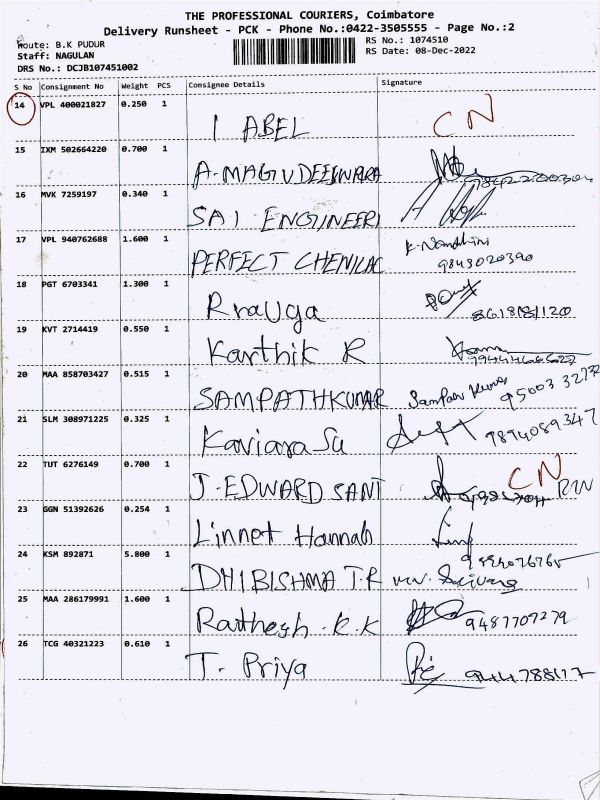 THE PROFESSIONAL COURIERS, Coimbatore
Delivery Runsheet - PCK - Phone No.:0422-3505555 - Page No.:2
Route: B.K PUDUR
RS No.: 1074510
Staff: NAGULAN
RS Date: 08-Dec-2022
DRS No.: DCJB107451002
S No Consignment No Weight PCS Consignee Details Signature
14 VPL 400021827 0.250 1
I ABEL CN
15 IXM 502664220 0.700 1
A-MAGUDEESWARA
16 MVK 7259197 0.340 1
SAI ENGINEERI
17 VPL 940762688 1.600 1
PERFECT CHENILAC K-Nandhini
9843020390
18 PGT 6703341 1.300 1
Rrauga
19 KVT 2714419 0.550 1
Karthik R
20 MAA 858703427 0.515 1
SAMPATHKUMAR Sampath Kumar 95003
21 SLM 308971225 0.325 1
Kaviarasu 9894089347
22 TUT 6276149 0.700 1 CN
J-EDWARD SANT
23 GGN 51392626 0.254 1
Linnet Hannah
24 KSM 892871 5.800 1
DHIBISHMA T.R
25 MAA 286179991 1.600 1
Rathesh.K.K 9487707279
26 TCG 40321223 0.610 1
T. Priya